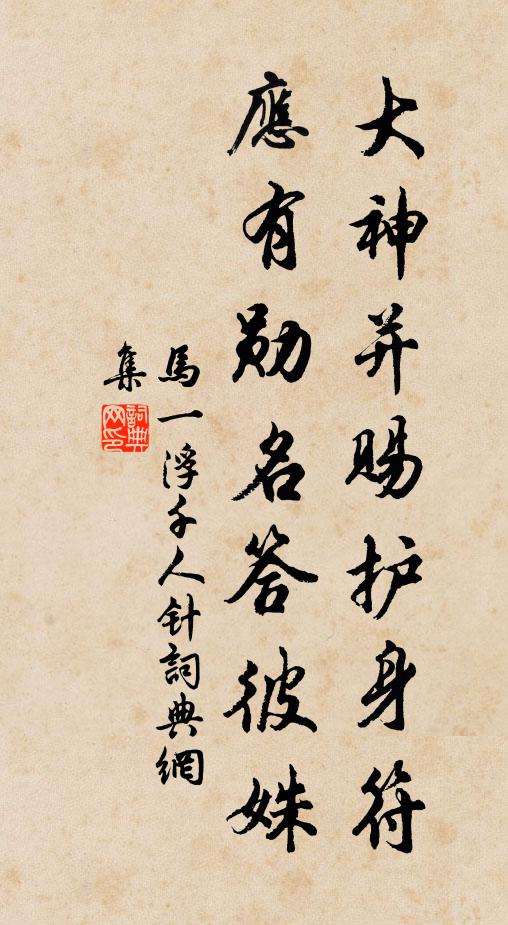 大神并賜护身符
應有勛名答彼姝
馬一浮千人针詞典網
集
詞典
网印